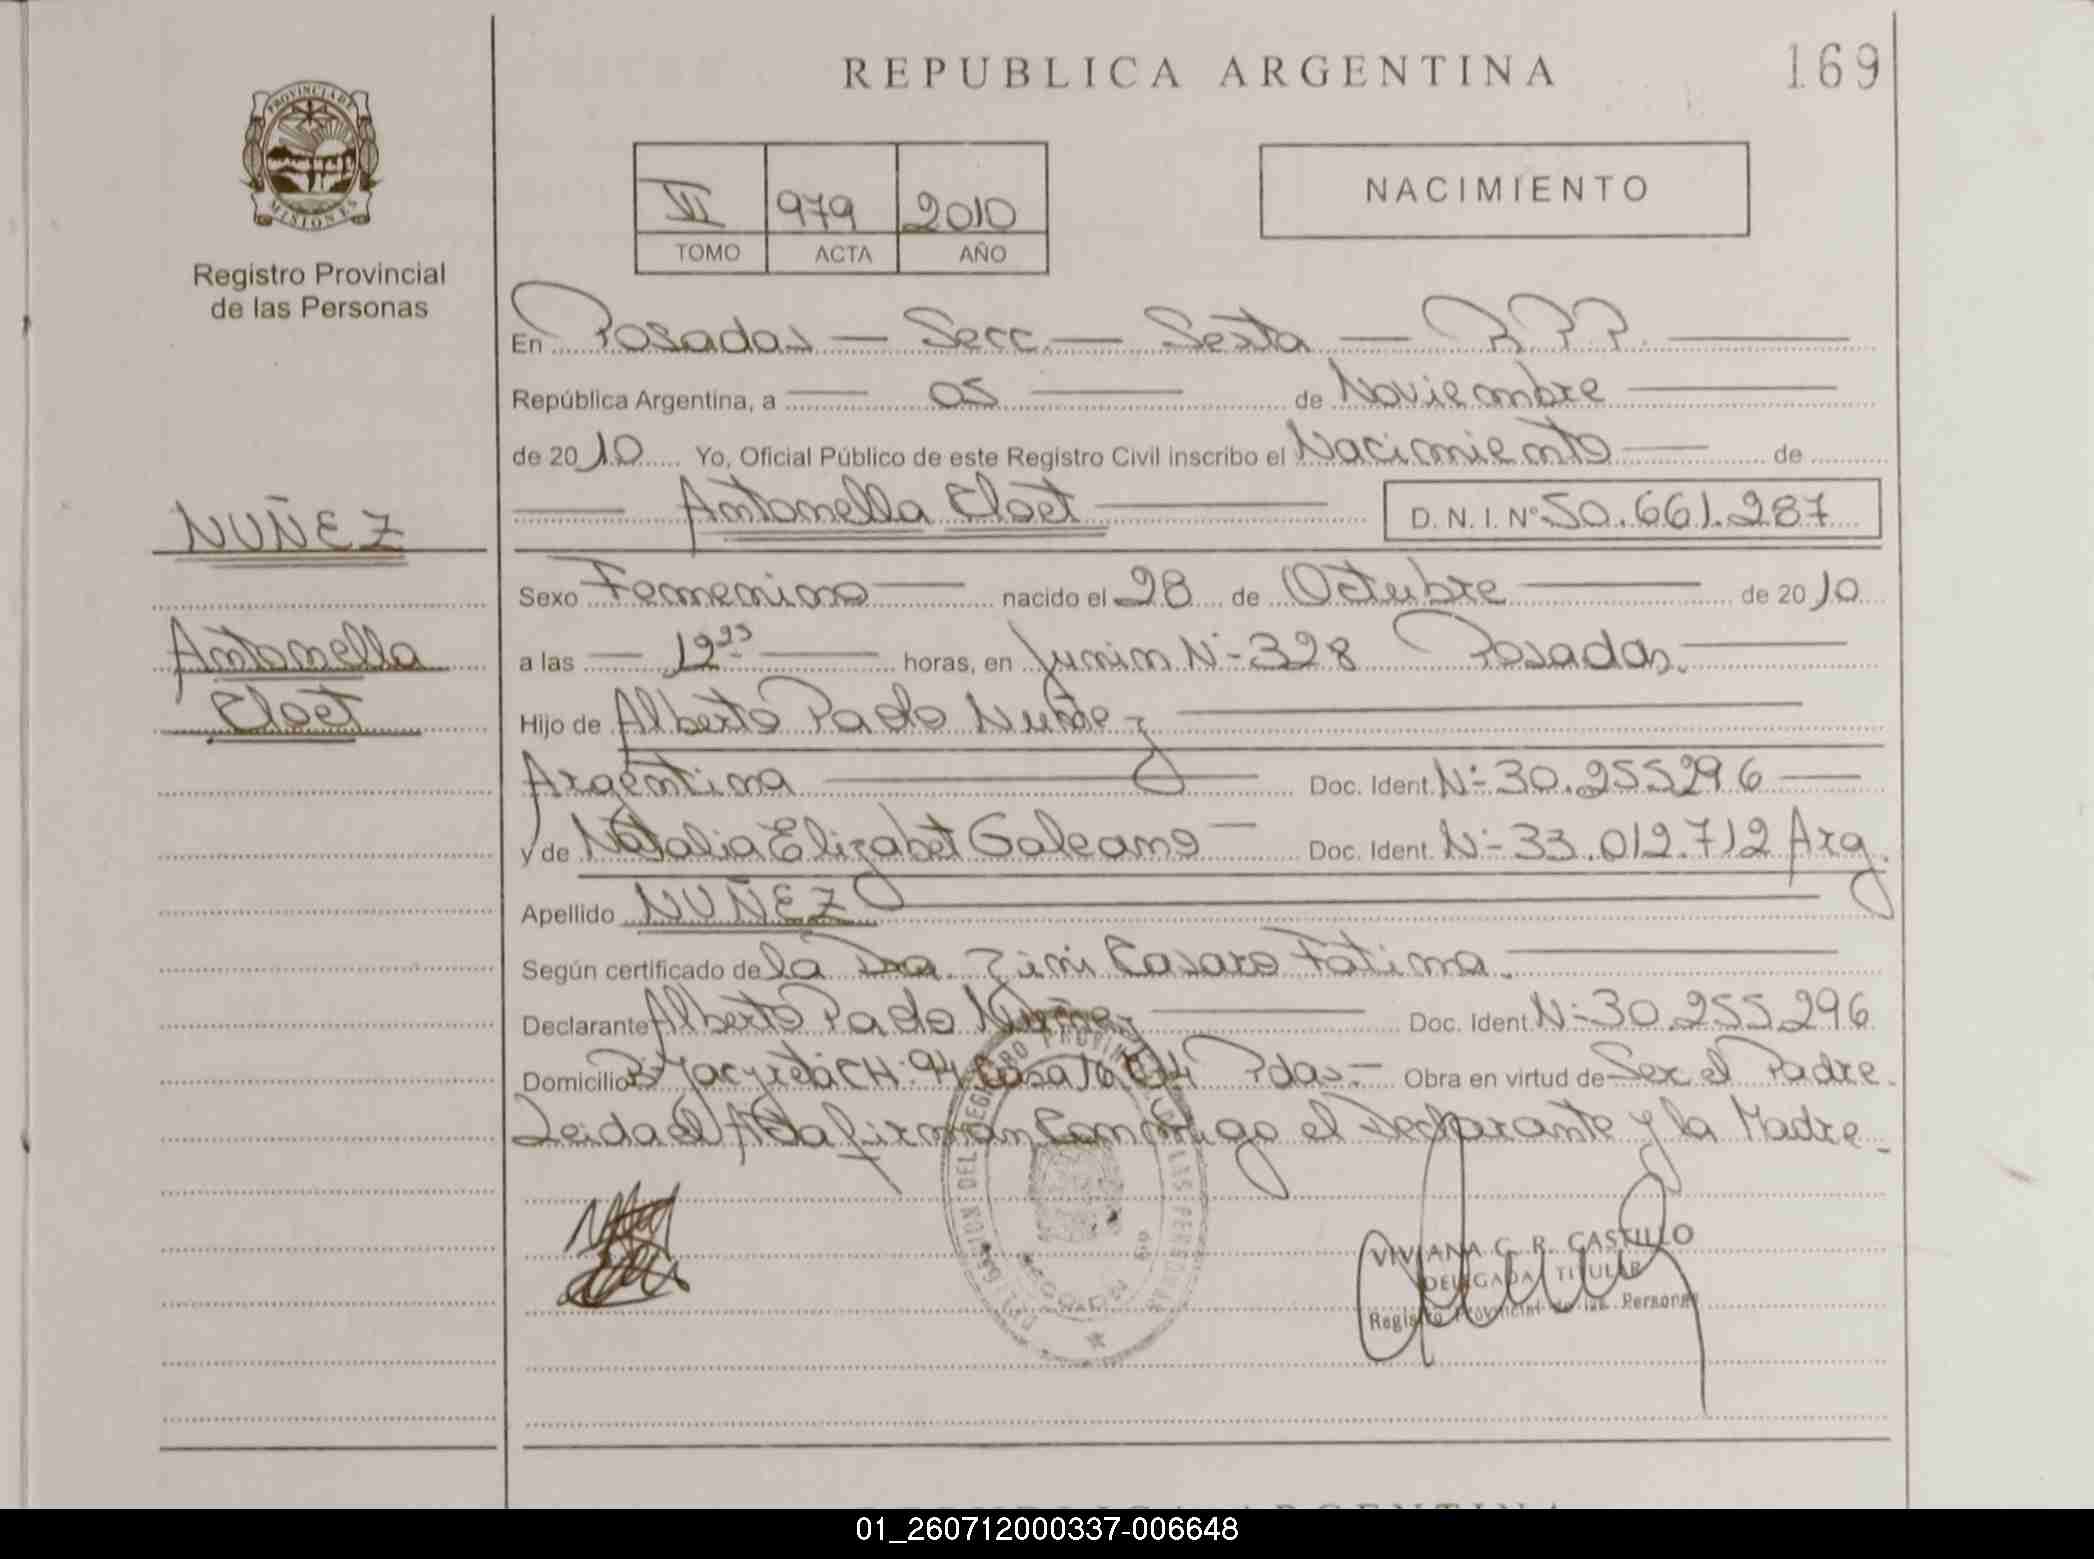 REPUBLICA ARGENTINA
169
PROVINCIA DE
MISIONES
Registro Provincial
de las Personas
VI 979 2010
TOMO ACTA AÑO
NACIMIENTO
En Posadas — Secc. — Sexta — R.P.P.
República Argentina, a — 05 — de Noviembre
de 2010 Yo, Oficial Público de este Registro Civil inscribo el Nacimiento — de
— Antonella Eloet — D. N. I. Nº 50.661.287
NUÑEZ
Antonella
Eloet
Sexo Femenino — nacido el 28 de Octubre — de 2010
a las — 12 — horas, en Junin Nº 328 Posadas.
Hijo de Alberto Pablo Nuñez
Argentina — Doc. Ident. Nº 30.255296
y de Natalia Elizabet Galeano — Doc. Ident. Nº 33.012.712 Arg.
Apellido NUÑEZ
Según certificado de la Dra. Casaro Fatima.
Declarante Alberto Pablo Nuñez — Doc. Ident. Nº 30.255.296
Domicilio Bº Yacyreta CH: 94 Casa 16 Pdas. — Obra en virtud de Ser el Padre.
Leida el Acta firman Conmigo el Declarante y la Madre.
DEL REGISTRO PROVINCIAL DE LAS PERSONAS
VIVIANA C. R. CASTILLO
DELEGADA TITULAR
Registro Provincial de las Personas
01_260712000337-006648